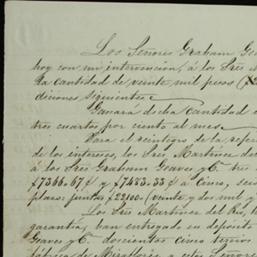 Los Señores Graham Gea
hoy con mi intervencion, á los Sres M
la cantidad de veinte mil pesos ($2
diciones siguientes
Ganará dicha Cantidad e
tres cuartos por ciento al mes
Para el reintegro de la refer
de los intereses, los Sres Martinez del
á los Sres Graham Geaves y C. tre
$7366.67 ¢ y $7483.33 ¢ a cinco, seis
plazo: juntos $22100. (veinte y dos mil y
Los Sres Martinez del Rio, h
garantia, han entregado en depósito
Geaves y C. doscientos cinco tercios
fábrica de Miraflores